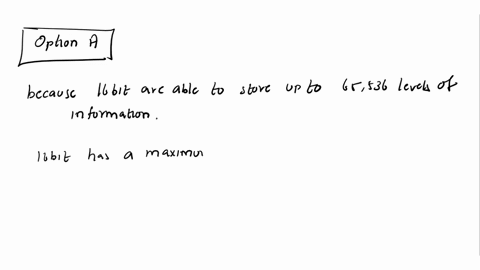 Option A
because 16bit are able to store up to 65,536 levels of
information.
16bit has a maximum